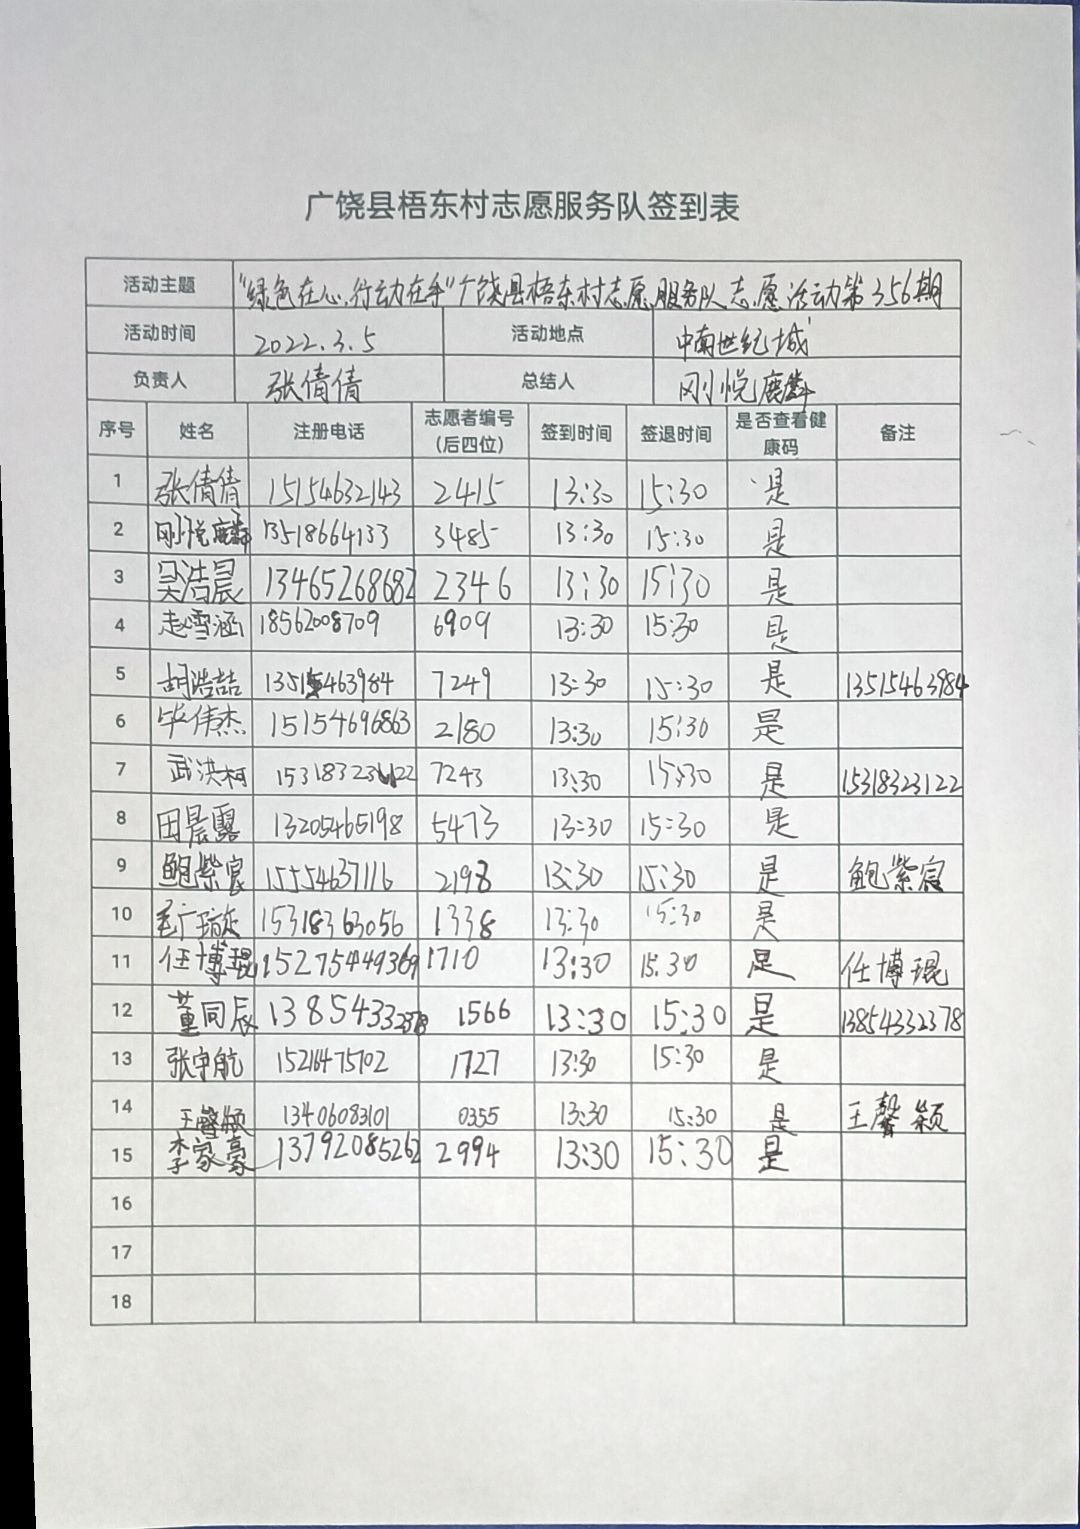 广饶县梧东村志愿服务队签到表
活动主题 "绿色在心,行动在手"广饶县梧东村志愿服务队志愿活动第356期
活动时间 2022.3.5 活动地点 中南世纪城
负责人 张倩倩 总结人 刚悦麟
序号 姓名 注册电话 志愿者编号(后四位) 签到时间 签退时间 是否查看健康码 备注
1 张倩倩 15154632143 2415 13:30 15:30 是
2 刚悦麟 13518664133 3485 13:30 15:30 是
3 吴浩晨 13465268682 2346 13:30 15:30 是
4 赵雪涵 18562008709 6909 13:30 15:30 是
5 胡浩喆 13515463984 7249 13:30 15:30 是 13515463984
6 毕伟杰 15154696863 2180 13:30 15:30 是
7 武洪柯 7243 13:30 15:30 是 15318323122
8 田晨露 13205465198 5473 13:30 15:30 是
9 鲍紫宸 15554637116 2198 13:30 15:30 是 鲍紫宸
10 15318363056 1338 13:30 15:30 是
11 任博琨 15275449369 1710 13:30 15:30 是 任博琨
12 董同辰 13854332378 1566 13:30 15:30 是 13854332378
13 张宇航 15216475702 1727 13:30 15:30 是
14 王馨颖 13406083101 0355 13:30 15:30 是 王馨颖
15 李家豪 13792085262 2994 13:30 15:30 是
16
17
18